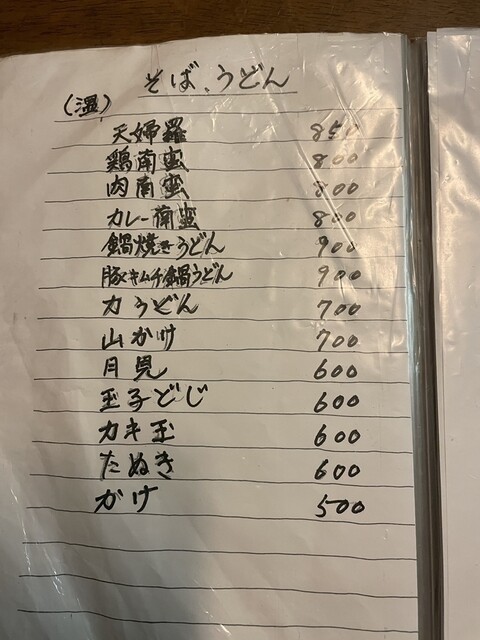 そば、うどん
(温)
天婦羅 850
鶏南蛮 800
肉南蛮 800
カレー南蛮 800
鍋焼きうどん 900
豚キムチ鍋うどん 900
力うどん 700
山かけ 700
月見 600
玉子どじ 600
カキ玉 600
たぬき 600
かけ 500